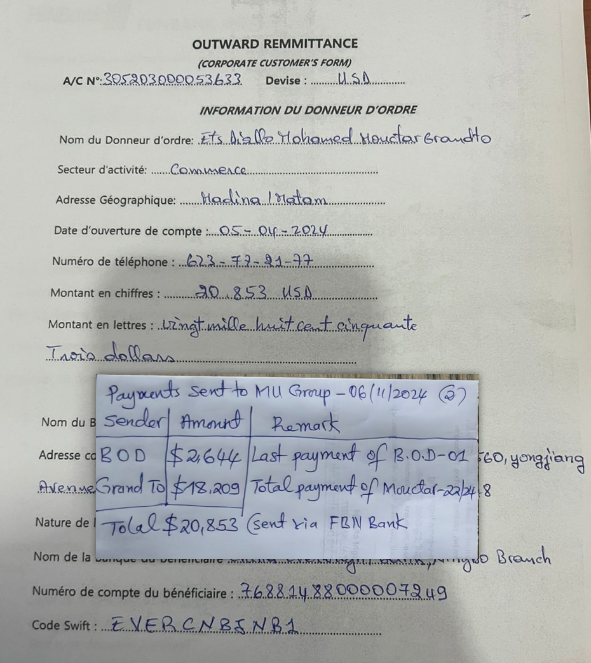 OUTWARD REMMITTANCE
(CORPORATE CUSTOMER'S FORM)
A/C N°: 305203000053633 Devise : USD
INFORMATION DU DONNEUR D'ORDRE
Nom du Donneur d'ordre: Ets Diallo Mohamed Mouctar Grandto
Secteur d'activité: Commerce
Adresse Géographique: Madina / Matam
Date d'ouverture de compte : 05-04-2024
Numéro de téléphone : 623-77-21-77
Montant en chiffres : 20.853 USD
Montant en lettres : Vingt mille huit cent cinquante
Trois dollars
Payments sent to MU Group - 06/11/2024 (2)
Nom du B
Sender Amount Remark
Adresse co
BOD $2,644 Last payment of B.O.D-01
60, yongjiang
Avenue
Grand To $18,209 Total payment of Mouctar-22/24
8
Nature de l
Total $20,853 (sent via FBN Bank
Nom de la Branch
Numéro de compte du bénéficiaire : 76881488000007249
Code Swift : EVERCNBJNB1